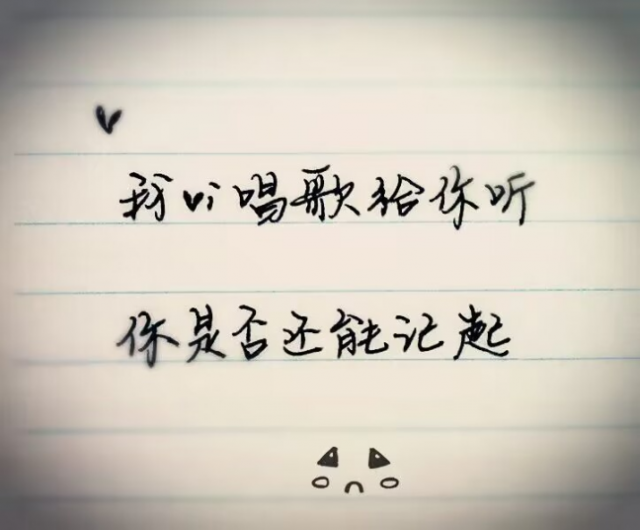 我的唱歌给你听
你是否还能记起